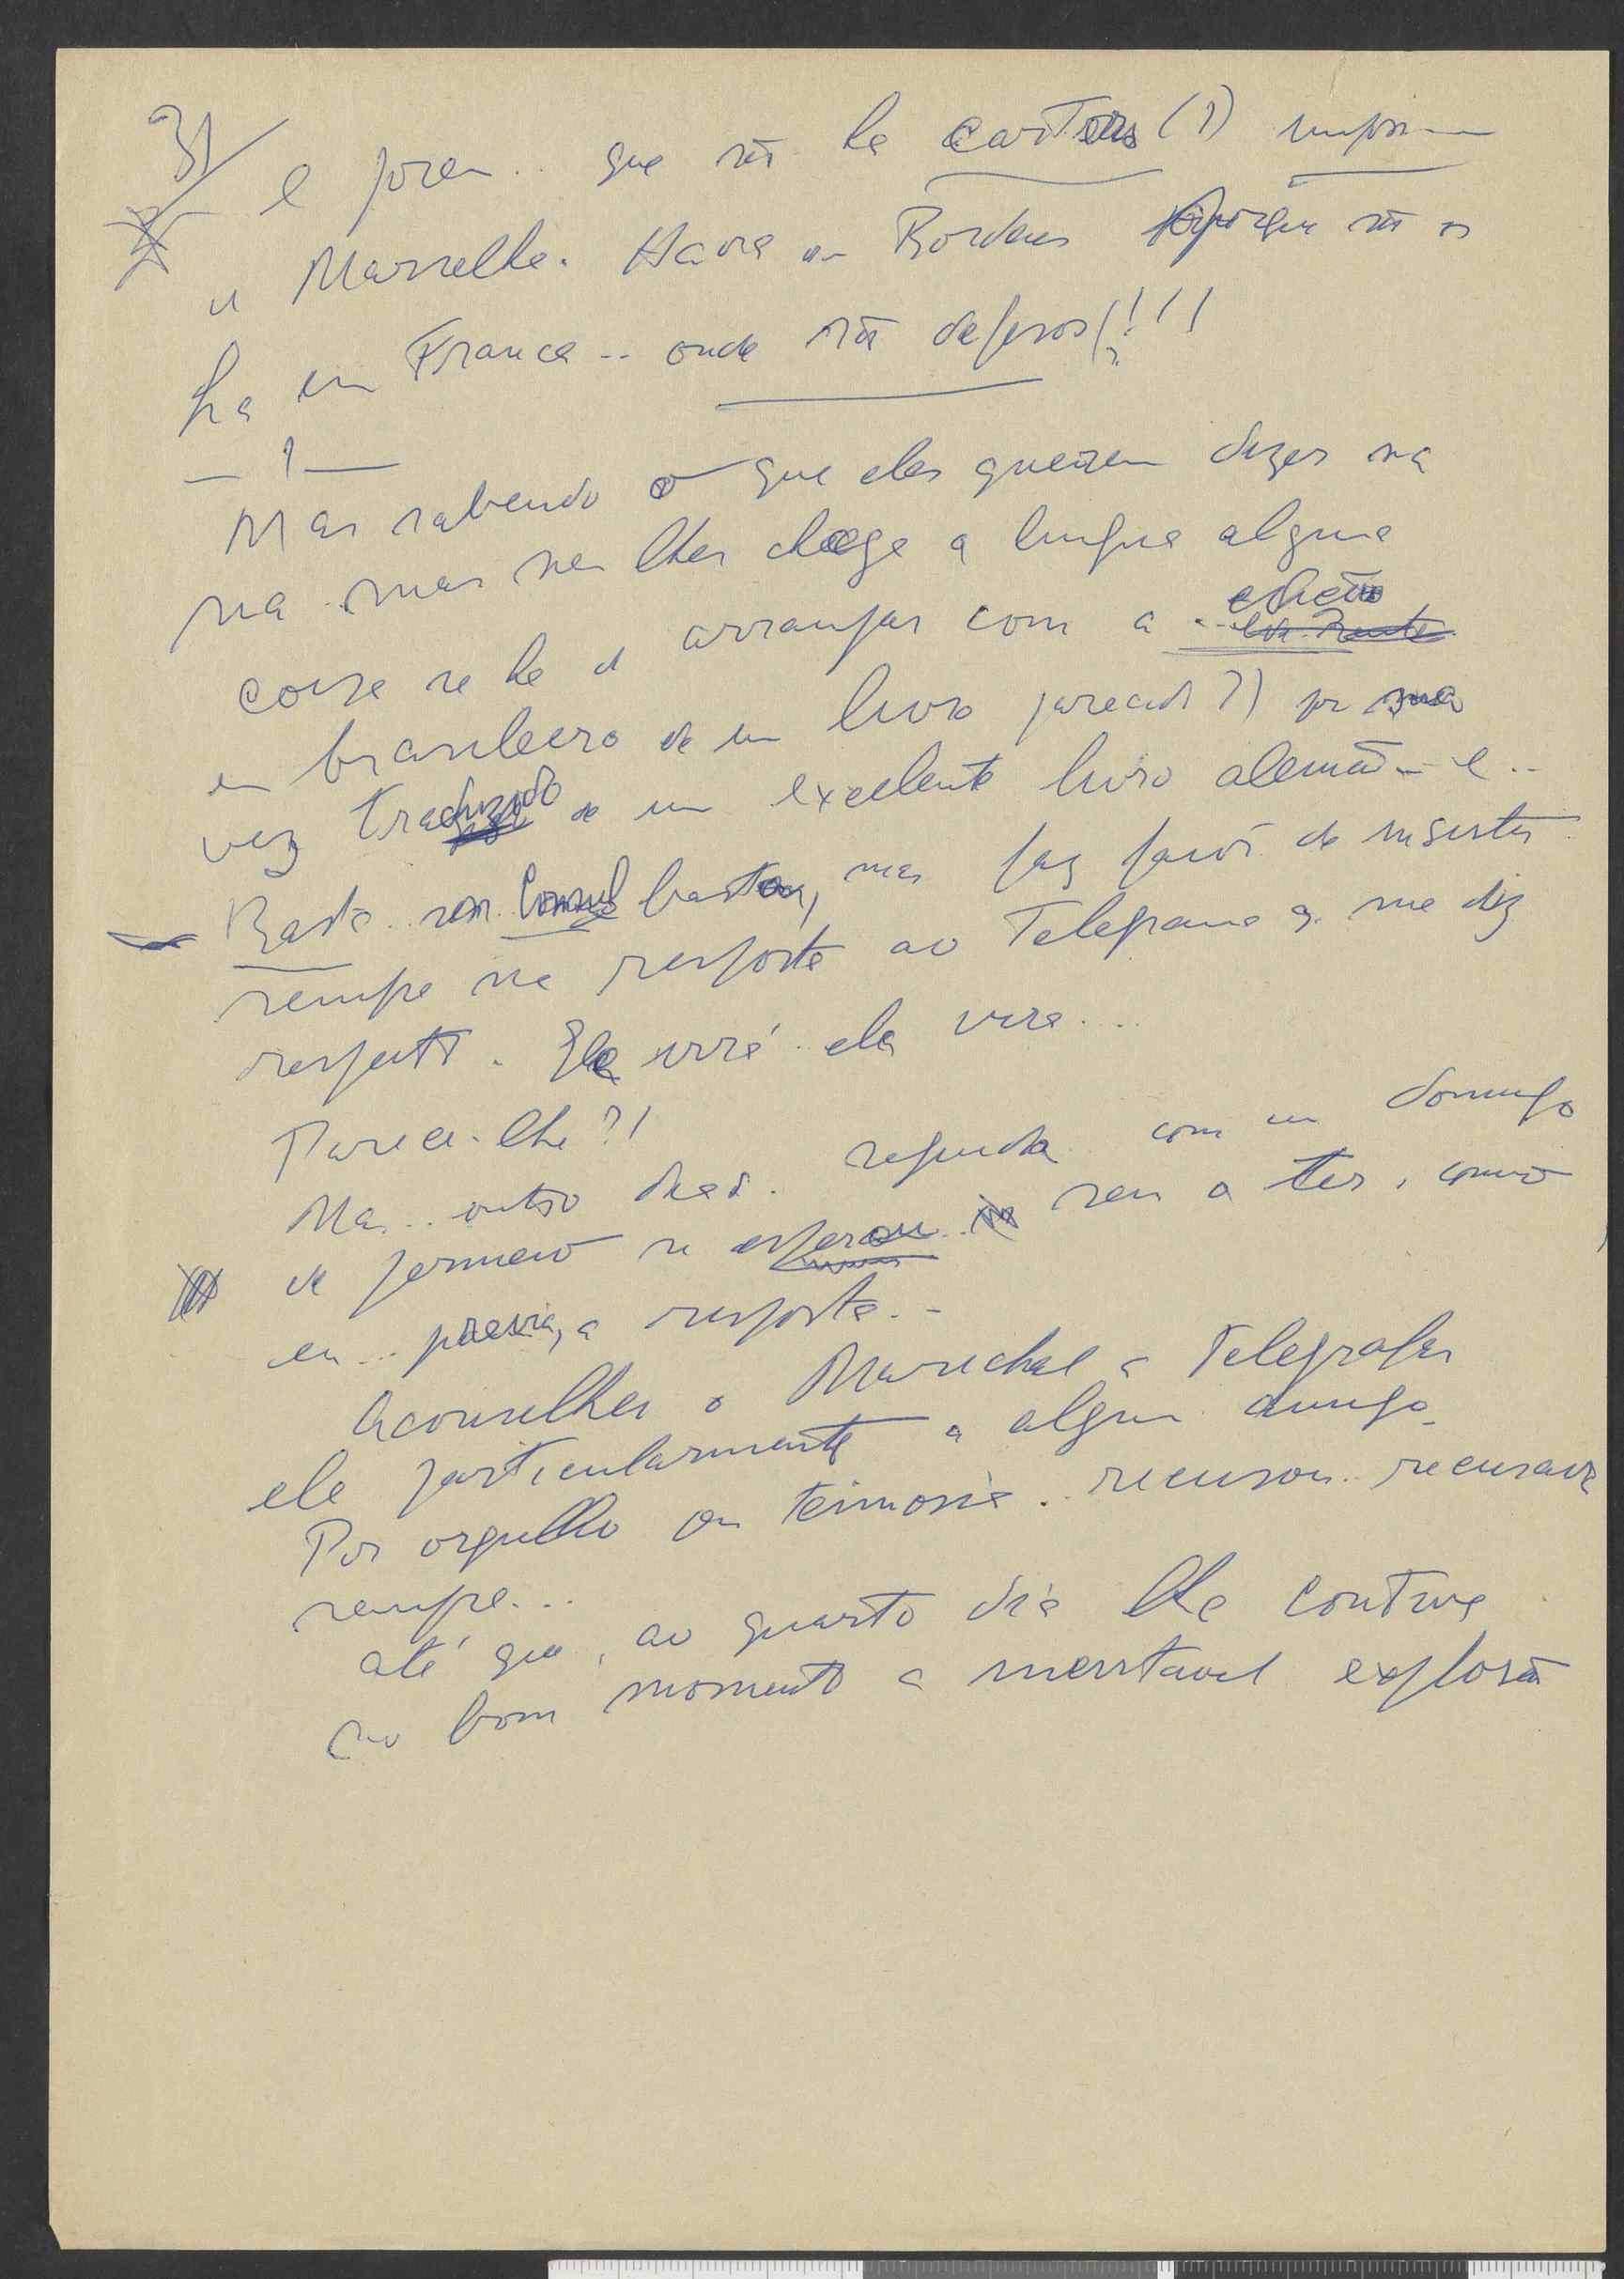 31
e porem.. que não ha cartas (?)
Marselha. Havre ou Bordeus porque não os
ha em França -- onde não defesos(?!!!
— 1 —
Mas sabendo o que eles querem dizer na
na mas nem lhes chega a lingua alguma
coisa se ha d arranjar com a .. edição
em brasileiro de um livro parecido ?) por sua
vez traduzido de um excelente livro alemão - e ..
Basta.. Consul bastou, mas faz favôr de insistir
sempre na resposta ao Telegrama q. me diz
respeito. Ela virá.. ela virá....
Parece-lhe?!
Mas.. outro dia. segunda com um domingo
de permeio se esperou.. sem a ter, como
eu... previa, a resposta. -
Aconselhei o Marechal a Telegrafar
ele particularmente a algum amigo.
Por orgulho ou teimosia. recusou.. recusava
sempre...
até que, ao quarto dia lhe contive
no bom momento a inevitavel explosão